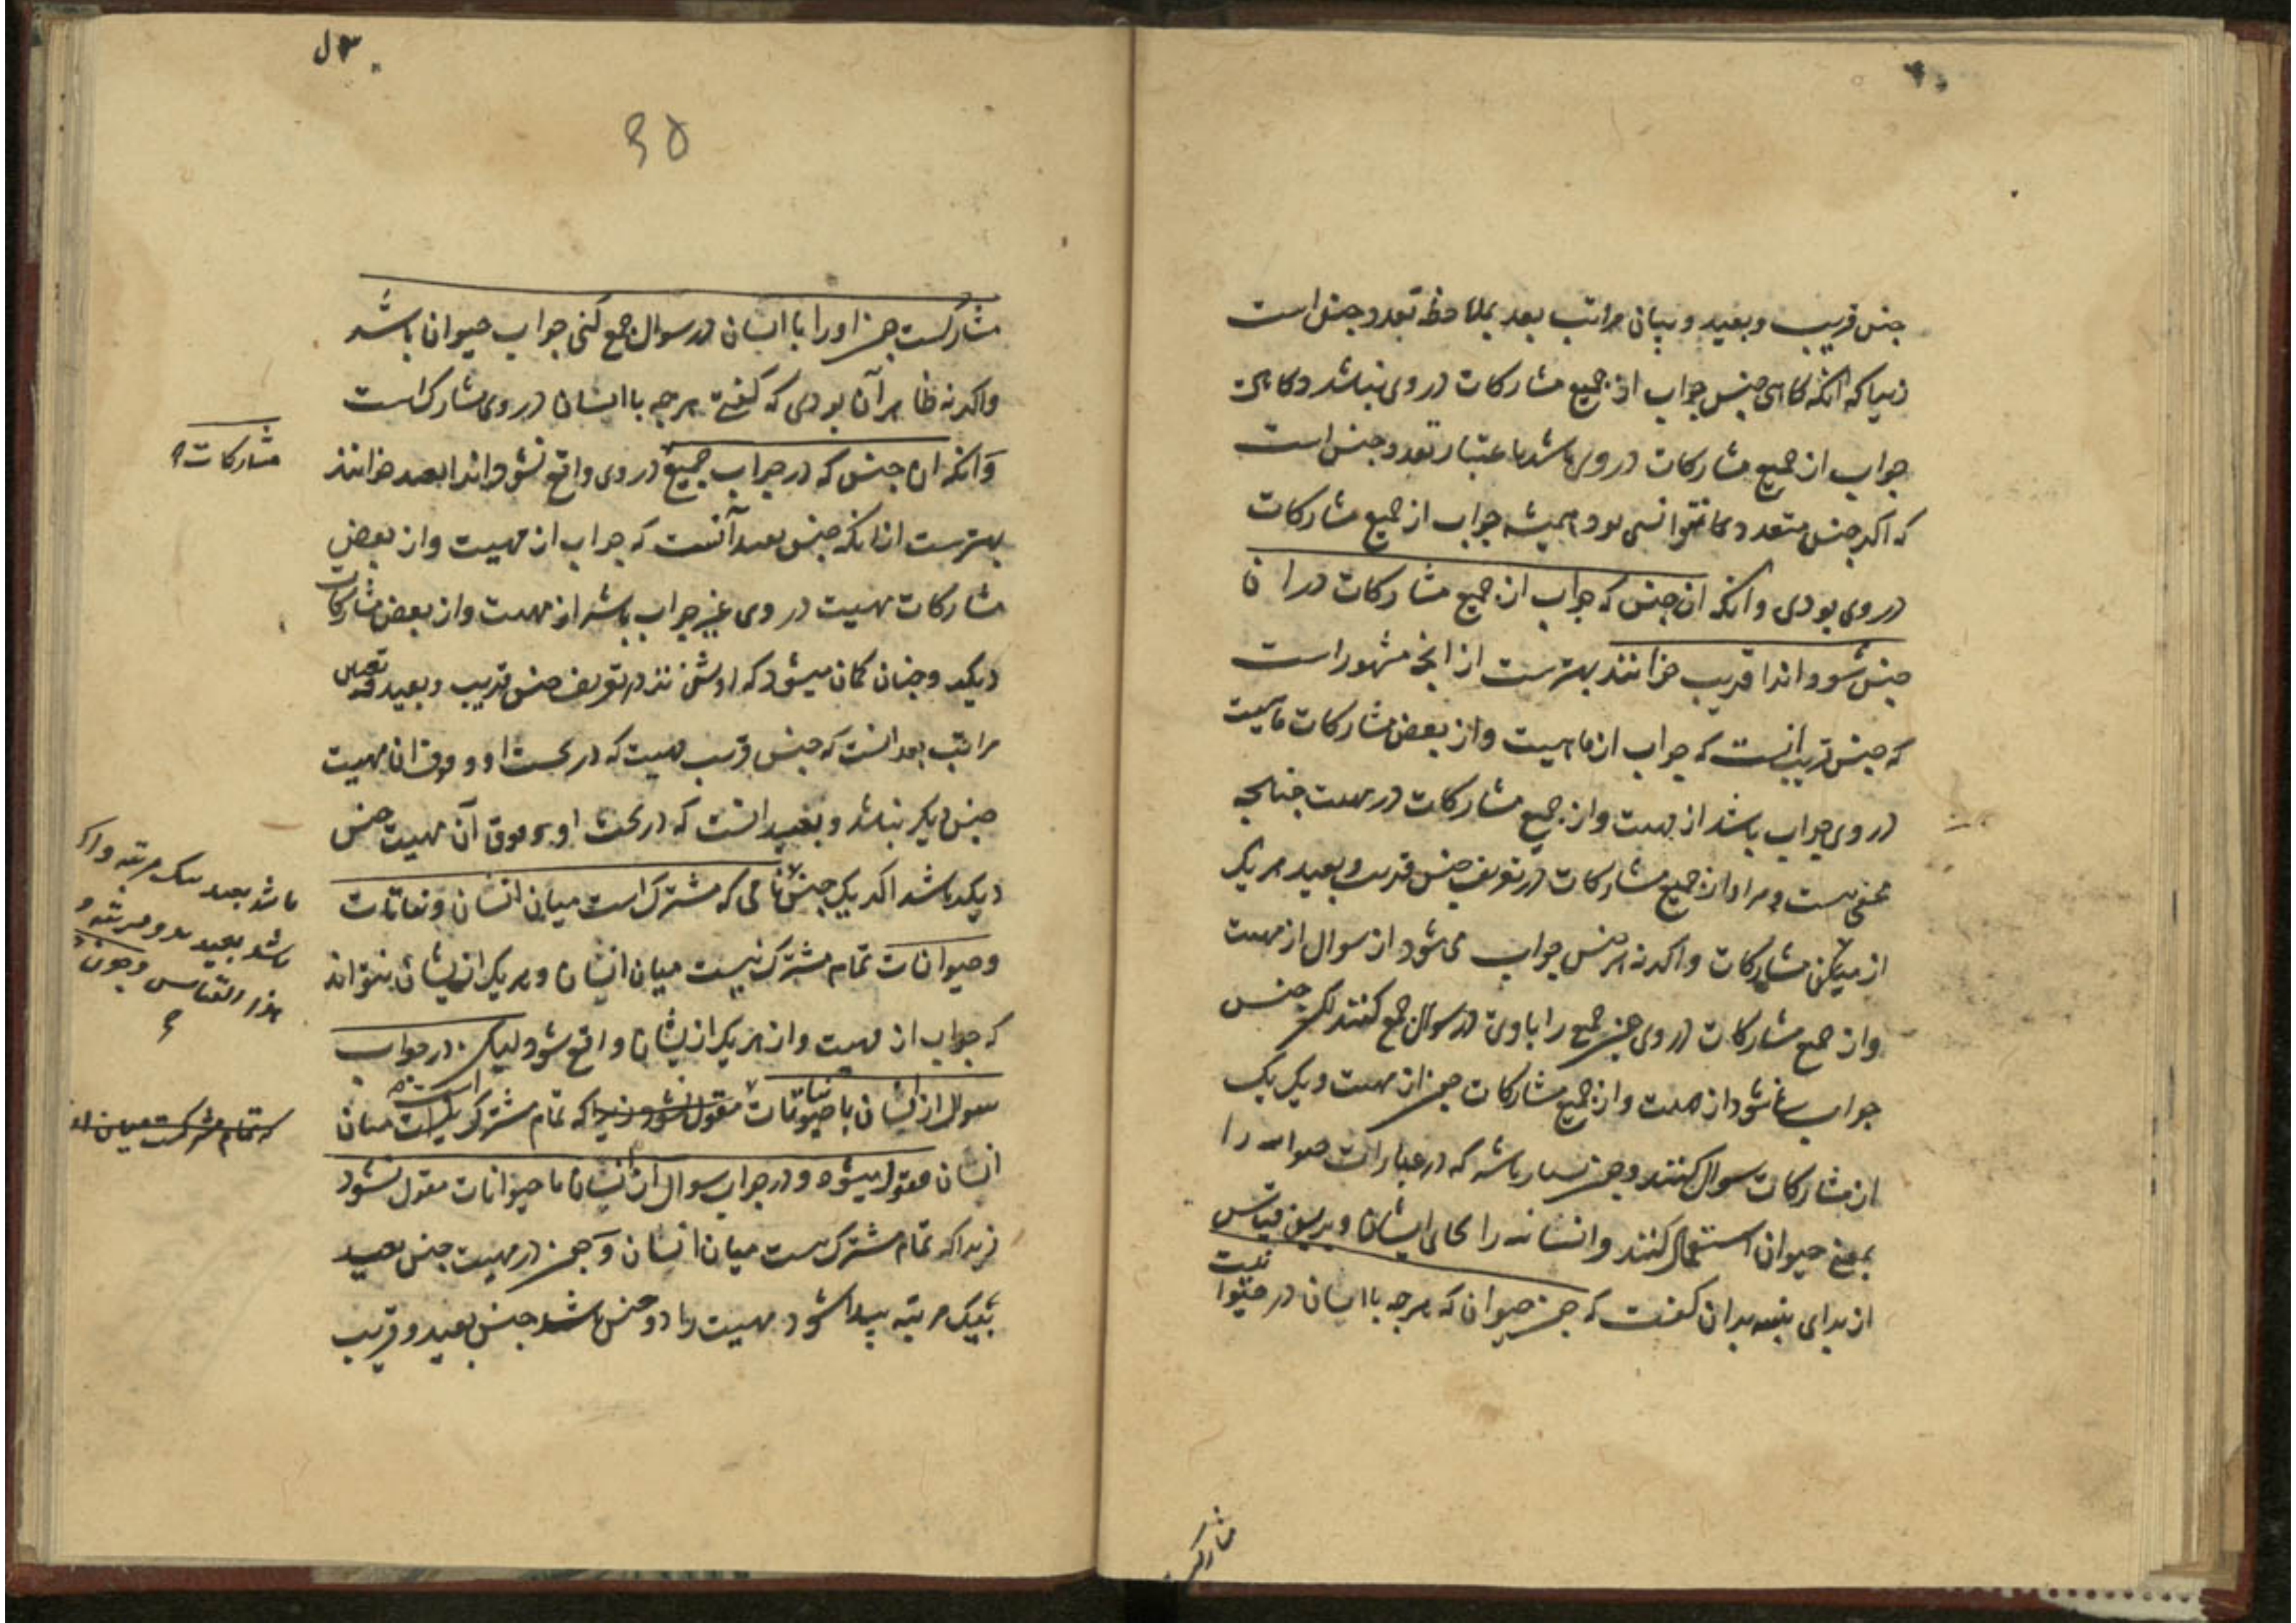 جنس قریب و بعید و بیان مراتب بعد بملاحظه تعدد جنس است
زیرا که آنکه کاهی جنس جواب از جمیع مشارکات در وی نباشد و کاهی
جواب از جمیع مشارکات در وی باشد باعتبار تعدد جنس است
که اکر جنس متعدد نتوانستی بود همیشه جواب از جمیع مشارکات
در وی بودی و آنکه ان جنس که جواب از جمیع مشارکات در ان
جنس شود و انرا قریب خوانند بهترست از انچه مشهور است
که جنس قریب انست که جواب از ماهیت و از بعض مشارکات ماهیت
در وی جواب باشد از مهیت و از جمیع مشارکات در مهیت چنانچه
مخفی نیست و مراد از جمیع مشارکات در تعریف جنس قریب و بعید هر یک
از مشارکات و اکرنه هر جنس جواب می شود از سوال از مهیت
و از جمیع مشارکات در وی چون جمیع را با وی در سوال جمع کنند لیکن جنس
جواب نمی شود از مهیت و از جمیع مشارکات چون از مهیت و یک یک
از مشارکات سوال کنند و چون بسیار باشد که در عبارات حیوانیه را
بمعنی حیوان استعمال کنند و انسانیه را بجای ایشان و برین قیاس
از برای تنبیه بدان کفت که چون حیوان که هرچه با انسان در حیوا
نیت
مشارکست
۳۵
مشارکست چون او را با انسان در سوال جمع کنی جواب حیوان باشد
واکرنه ظاهر آن بودی که کفتی هرچه با انسان در وی مشارک است
و آنکه ان جنس که در جواب جمیع در وی واقع نشود انرا بعید خوانند
مشارکات
بهترست از انکه جنس بعید آنست که جواب از مهیت و از بعض
مشارکات مهیت در وی غیر جواب باشد از مهیت و از بعض مشارکات
دیکر و چنان کمان میشود که روشن تر در تعریف جنس قریب و بعید و تعیین
مراتب بعد انست که جنس قریب مهیت که در تحت او و فوق ان مهیت
جنس دیکر نباشد و بعید انست که در تحت او و فوق آن مهیت جنس
دیکر باشد اکر یک جنس باشد بعید بیک مرتبه و اکر
باشد بعید بدو مرتبه و
هذا القیاس و چون
نامی که مشترک است میان انسان و نباتات
و حیوانات تمام مشترک نیست میان انسان و هر یک از ایشان نتواند
که جواب از مهیت و از هر یک از ایشان واقع شود لیکن در جواب
سوال از انسان با نباتات مقول نشود زیرا که تمام مشترک است میان
که تمام مشترکست میان
انسان مقول میشود و در جواب سوال از انسان با حیوانات مقول نشود
زیرا که تمام مشترک نیست میان انسان و چون در مهیت جنس بعید
بیک مرتبه پیدا شود مهیت را دو جنس باشد جنس بعید و قریب